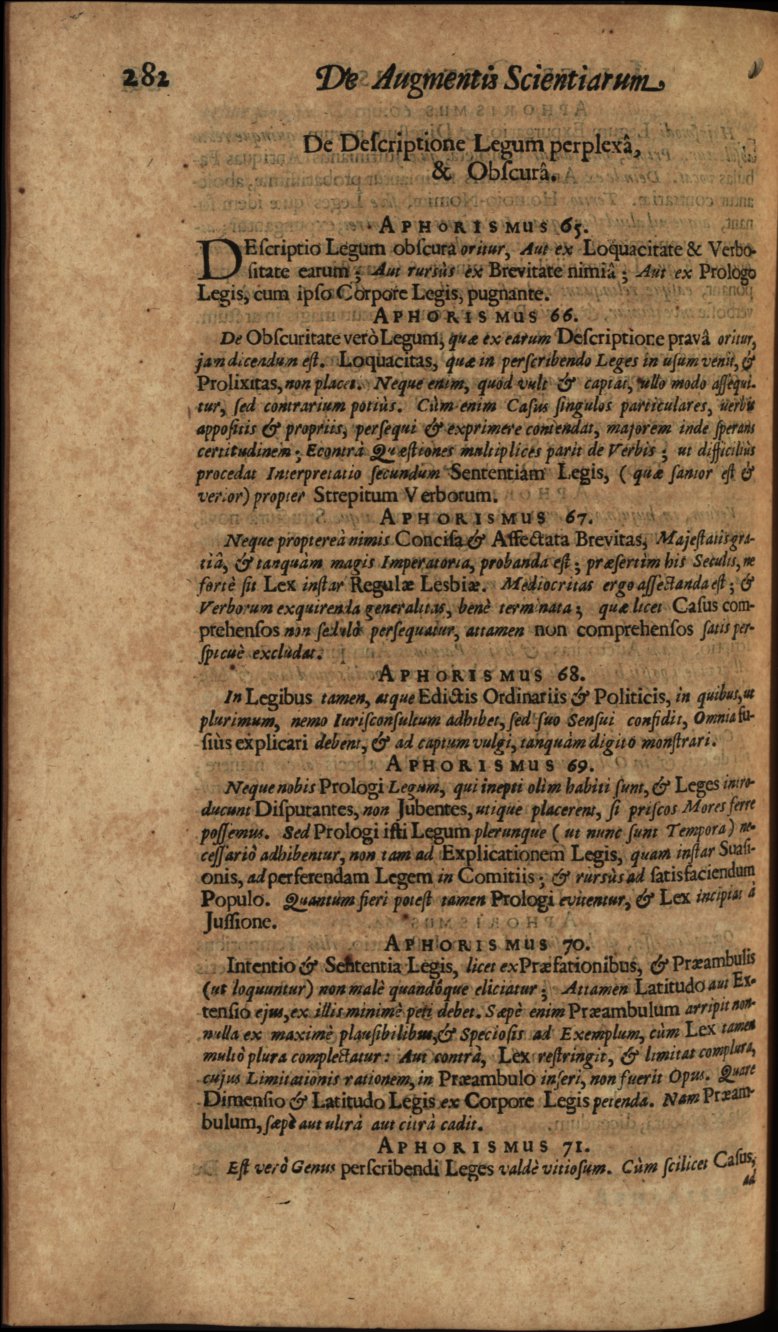 282 De Augmentis Scientiarum
De Deſcriptione Legum perplexâ,
& Obſcurâ.
APHORISMUS 65.
DEſcriptio Legum obſcura oritur, Aut ex Loquacitate & Verbo-
ſitate earum; Aut rursùs ex Brevitate nimiâ; Aut ex Prologo
Legis, cum ipſo Corpore Legis, pugnante.
APHORISMUS 66.
De Obſcuritate verò Legum, quæ ex earum Deſcriptione pravâ oritur,
jam dicendum eſt. Loquacitas, quæ in perſcribendo Leges in uſum venit, &
Prolixitas, non placet. Neque enim, quod vult & captat, ullo modo aſſequi-
tur, ſed contrarium potiùs. Cùm enim Caſus ſingulos particulares, verbis
appoſitis & propriis, perſequi & exprimere contendat, majorem inde ſperans
certitudinem; Econtrà Quæſtiones multiplices parit de Verbis; ut difficiliùs
procedat Interpretatio ſecundùm Sententiam Legis, (quæ ſanior eſt &
verior) propter Strepitum Verborum.
APHORISMUS 67.
Neque proptereà nimis Conciſa & Affectata Brevitas, Majeſtatis gra-
tiâ, & tanquàm magis Imperatoria, probanda eſt; præſertim his Seculis, ne
fortè ſit Lex inſtar Regulæ Lesbiæ. Mediocritas ergo aſſectanda eſt; &
Verborum exquirenda generalitas, benè terminata; quæ licet Caſus com-
prehenſos non ſedulò perſequatur, attamen non comprehenſos ſatis per-
ſpicuè excludat.
APHORISMUS 68.
In Legibus tamen, atque Edictis Ordinariis & Politicis, in quibus, ut
plurimum, nemo Iuriſconſultum adhibet, ſed ſuo Senſui confidit, Omnia fu-
ſiùs explicari debent, & ad captum vulgi, tanquàm digito monſtrari.
APHORISMUS 69.
Neque nobis Prologi Legum, qui inepti olim habiti ſunt, & Leges intro-
ducunt Diſputantes, non Jubentes, utique placerent, ſi priſcos Mores ferre
poſſemus. Sed Prologi iſti Legum plerunque (ut nunc ſunt Tempora) ne-
ceſſariò adhibentur, non tam ad Explicationem Legis, quam inſtar Suaſi-
onis, ad perferendam Legem in Comitiis; & rursùs ad ſatisfaciendum
Populo. Quantùm fieri poteſt tamen Prologi evitentur, & Lex incipiat à
Juſſione.
APHORISMUS 70.
Intentio & Sententia Legis, licet ex Præfationibus, & Præambulis
(ut loquuntur) non malè quandôque eliciatur; Attamen Latitudo aut Ex-
tenſio ejus, ex illis minimè peti debet. Sæpè enim Præambulum arripit non-
nulla ex maximè plauſibilibus, & Specioſis ad Exemplum, cùm Lex tamen
multò plura complectatur: Aut contrà, Lex reſtringit, & limitat complura,
cujus Limitationis rationem, in Præambulo inſeri, non fuerit Opus. Quare
Dimenſio & Latitudo Legis ex Corpore Legis petenda. Nam Præam-
bulum, ſæpè aut ultrà aut citrà cadit.
APHORISMUS 71.
Eſt verò Genus perſcribendi Leges valdè vitioſum. Cùm ſcilicet Caſus,
ad